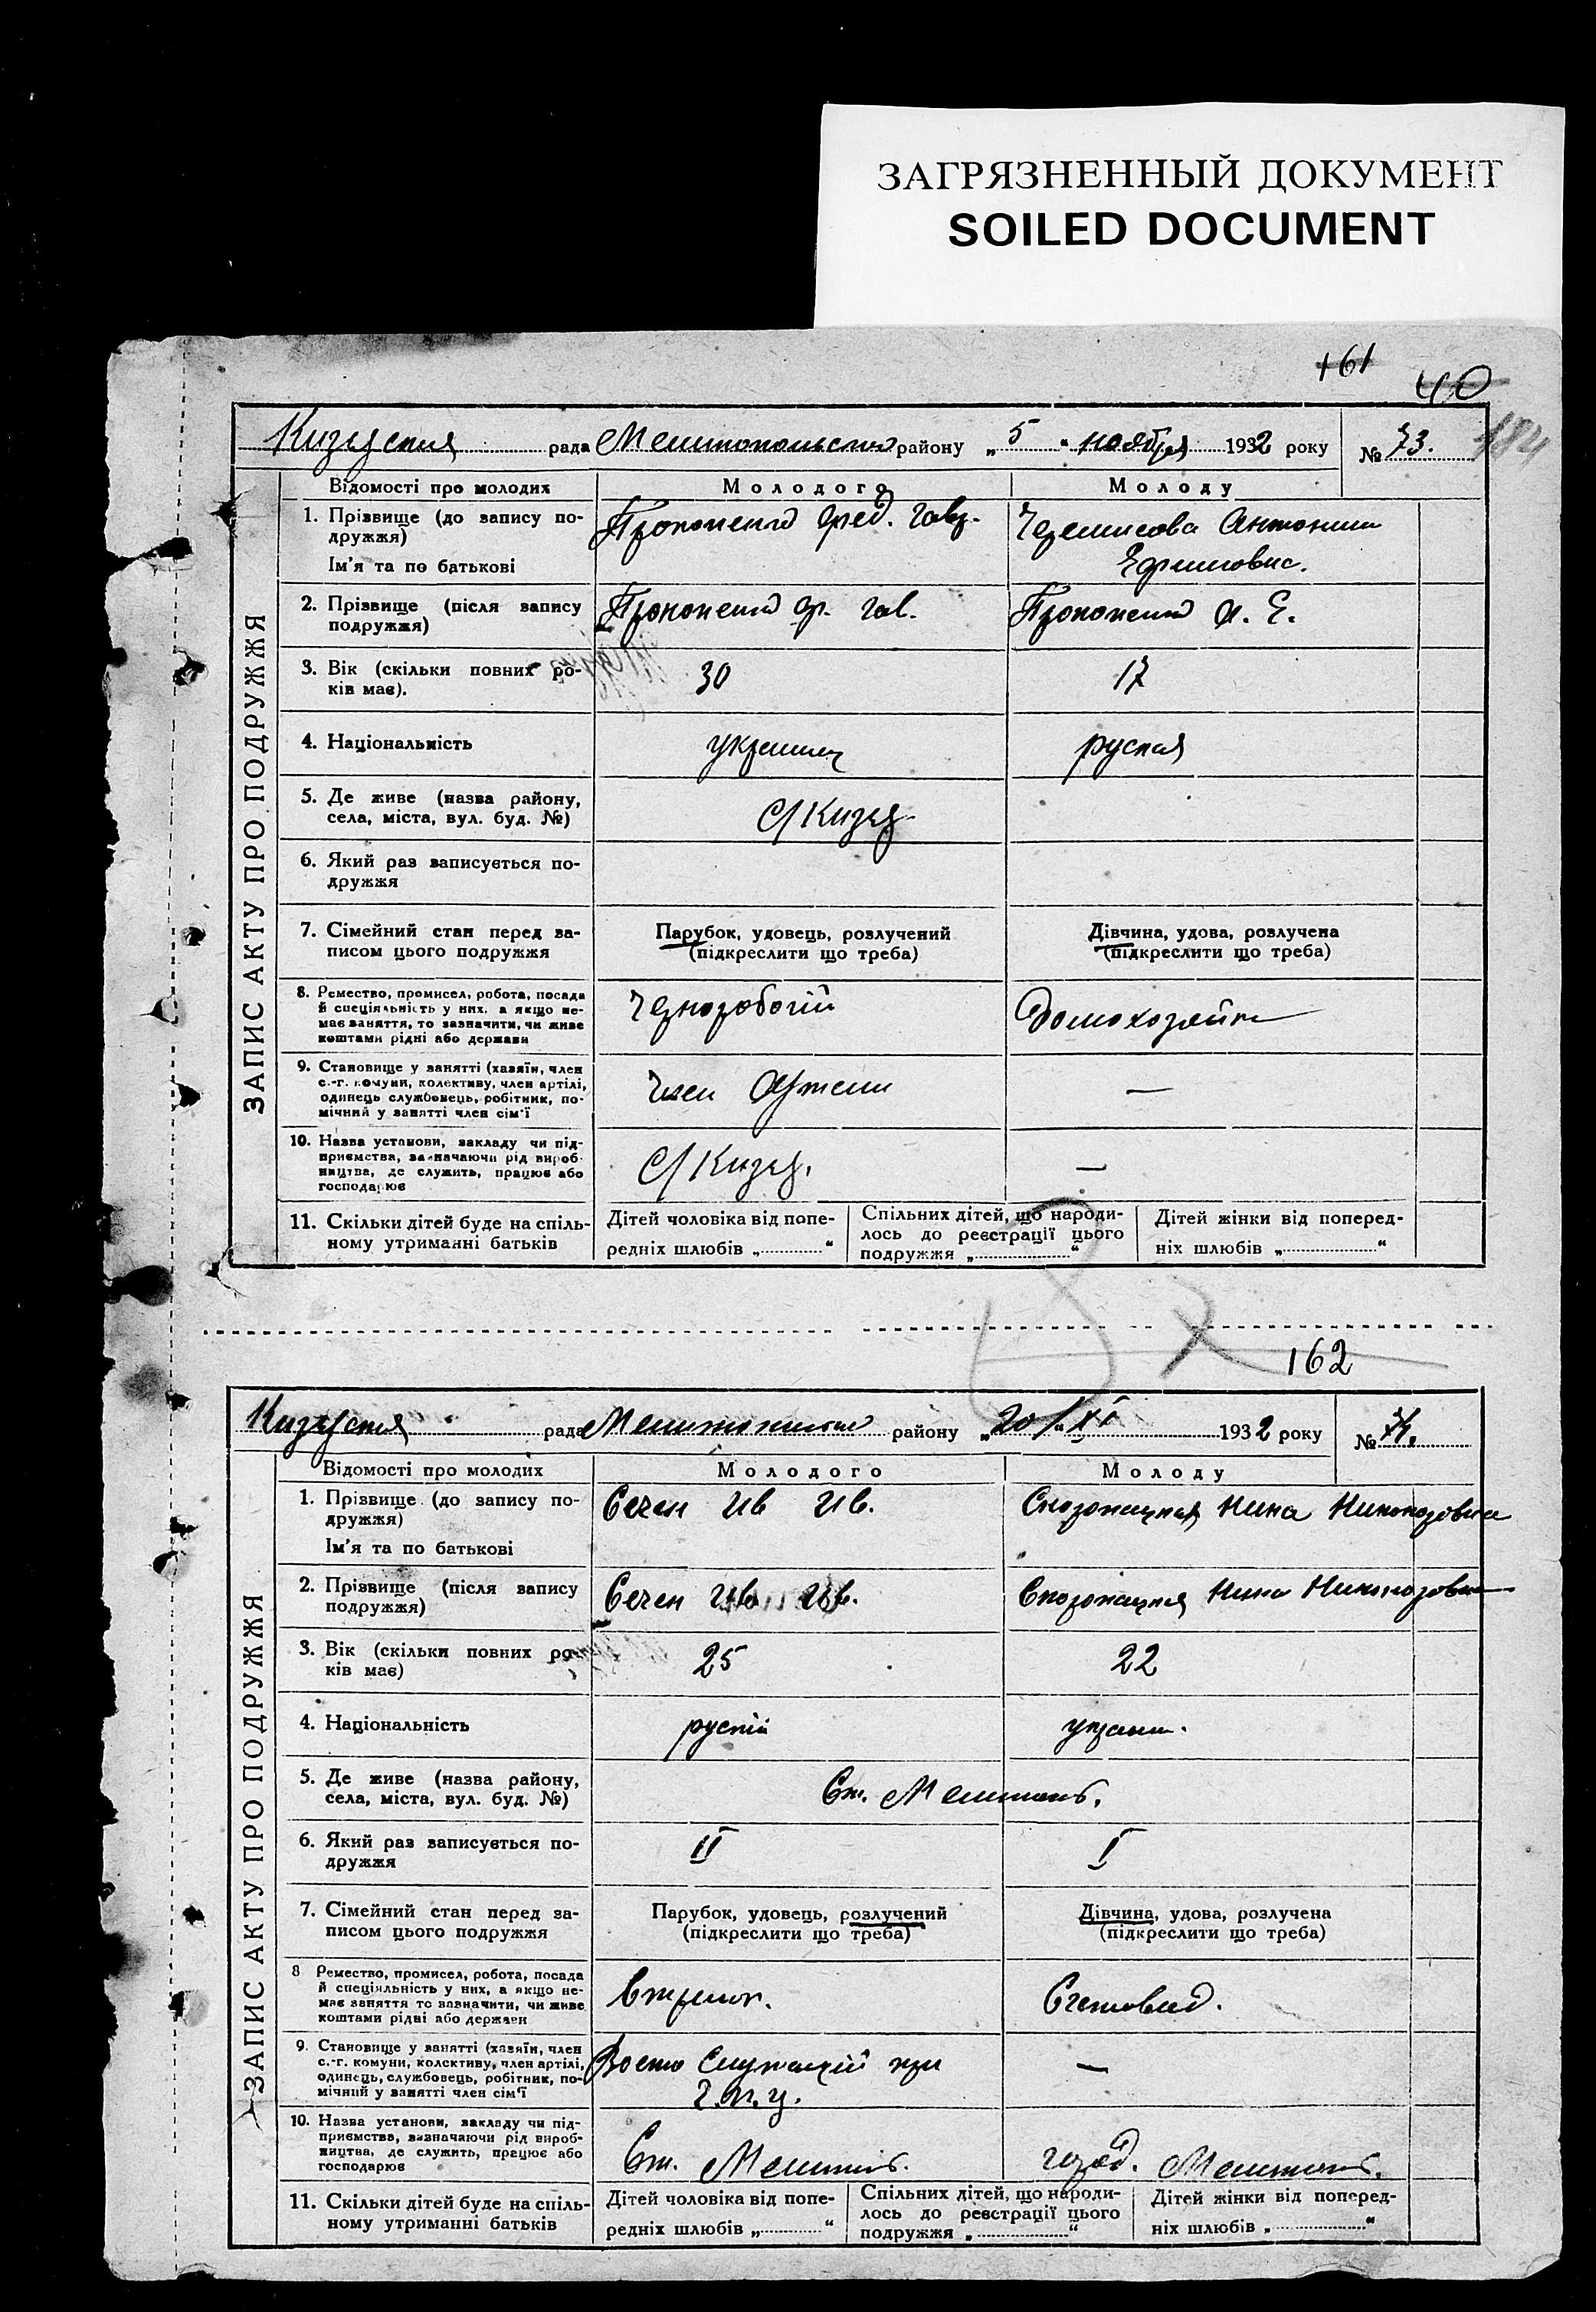 ЗАГРЯЗНЕННЫЙ ДОКУМЕНТ
SOILED DOCUMENT
161
40
184
рада района району „5“ ноября 1932 року № 73.
ЗАПИС АКТУ ПРО ПОДРУЖЖЯ
Відомості про молодих Молодого Молоду
1. Прізвище (до запису по-
дружжя)
Ім'я та по батькові
Прокопенко Фед. Гавр.
Черемисова Антонина
Ефимовна.
2. Прізвище (після запису
подружжя)
Прокопенко Ф. Гав.
Прокопенко А. Е.
3. Вік (скільки повних ро-
ків має).
30 17
4. Національність
украинец руская
5. Де живе (назва району,
села, міста, вул. буд. №)
С/Кизед
6. Який раз записується по-
дружжя
7. Сімейний стан перед за-
писом цього подружжя
Парубок, удовець, розлучений
(підкреслити що треба)
Дівчина, удова, розлучена
(підкреслити що треба)
8. Ремество, промисел, робота, посада
й спеціяльність у них, а якщо не-
має заняття, то зазначити, чи живе
коштами рідні або держави
Чернорабочій
Домохозяйка
9. Становище у занятті (хазяїн, член
с.-г. комуни, колективу, член артілі,
одинець службовець, робітник, по-
мічний у занятті член сім'ї
Член Артели
—
10. Назва установи, закладу чи під-
приємства, зазначаючи рід вироб-
ництва, де служить, працює або
господарює
С/Кизед.
—
11. Скільки дітей буде на спіль-
ному утриманні батьків
Дітей чоловіка від попе-
редніх шлюбів „ “
Спільних дітей, що народи-
лось до реєстрації цього
подружжя „ “
Дітей жінки від поперед-
ніх шлюбів „ “
162
рада району „20/“ XI 1932 року № 74.
ЗАПИС АКТУ ПРО ПОДРУЖЖЯ
Відомості про молодих Молодого Молоду
1. Прізвище (до запису по-
дружжя)
Ім'я та по батькові
Сечен Ив Ив.
Нина
2. Прізвище (після запису
подружжя)
Сечен Ив Ив.
Нина
3. Вік (скільки повних ро-
ків має)
25 22
4. Національність
рускій украин.
5. Де живе (назва району,
села, міста, вул. буд. №)
Ст. Мелитоп.
6. Який раз записується по-
дружжя
II I
7. Сімейний стан перед за-
писом цього подружжя
Парубок, удовець, розлучений
(підкреслити що треба)
Дівчина, удова, розлучена
(підкреслити що треба)
8 Ремество, промисел, робота, посада
й спеціяльність у них, а якщо не-
має заняття то зазначити, чи живе
коштами рідні або держави
Стрелок.
Счетовод.
9. Становище у занятті (хазяїн, член
с.-г. комуни, колективу, член артілі,
одинець, службовець, робітник, по-
мічний у занятті член сім'ї
Военно Служащій при
Г.П.У.
—
10. Назва установи, закладу чи під-
приємства, зазначаючи рід вироб-
ництва, де служить, працює або
господарює
Ст. Мелитоп.
город. Мелитоп.
11. Скільки дітей буде на спіль-
ному утриманні батьків
Дітей чоловіка від попе-
редніх шлюбів „ “
Спільних дітей, що народи-
лось до реєстрації цього
подружжя „ “
Дітей жінки від поперед-
ніх шлюбів „ “